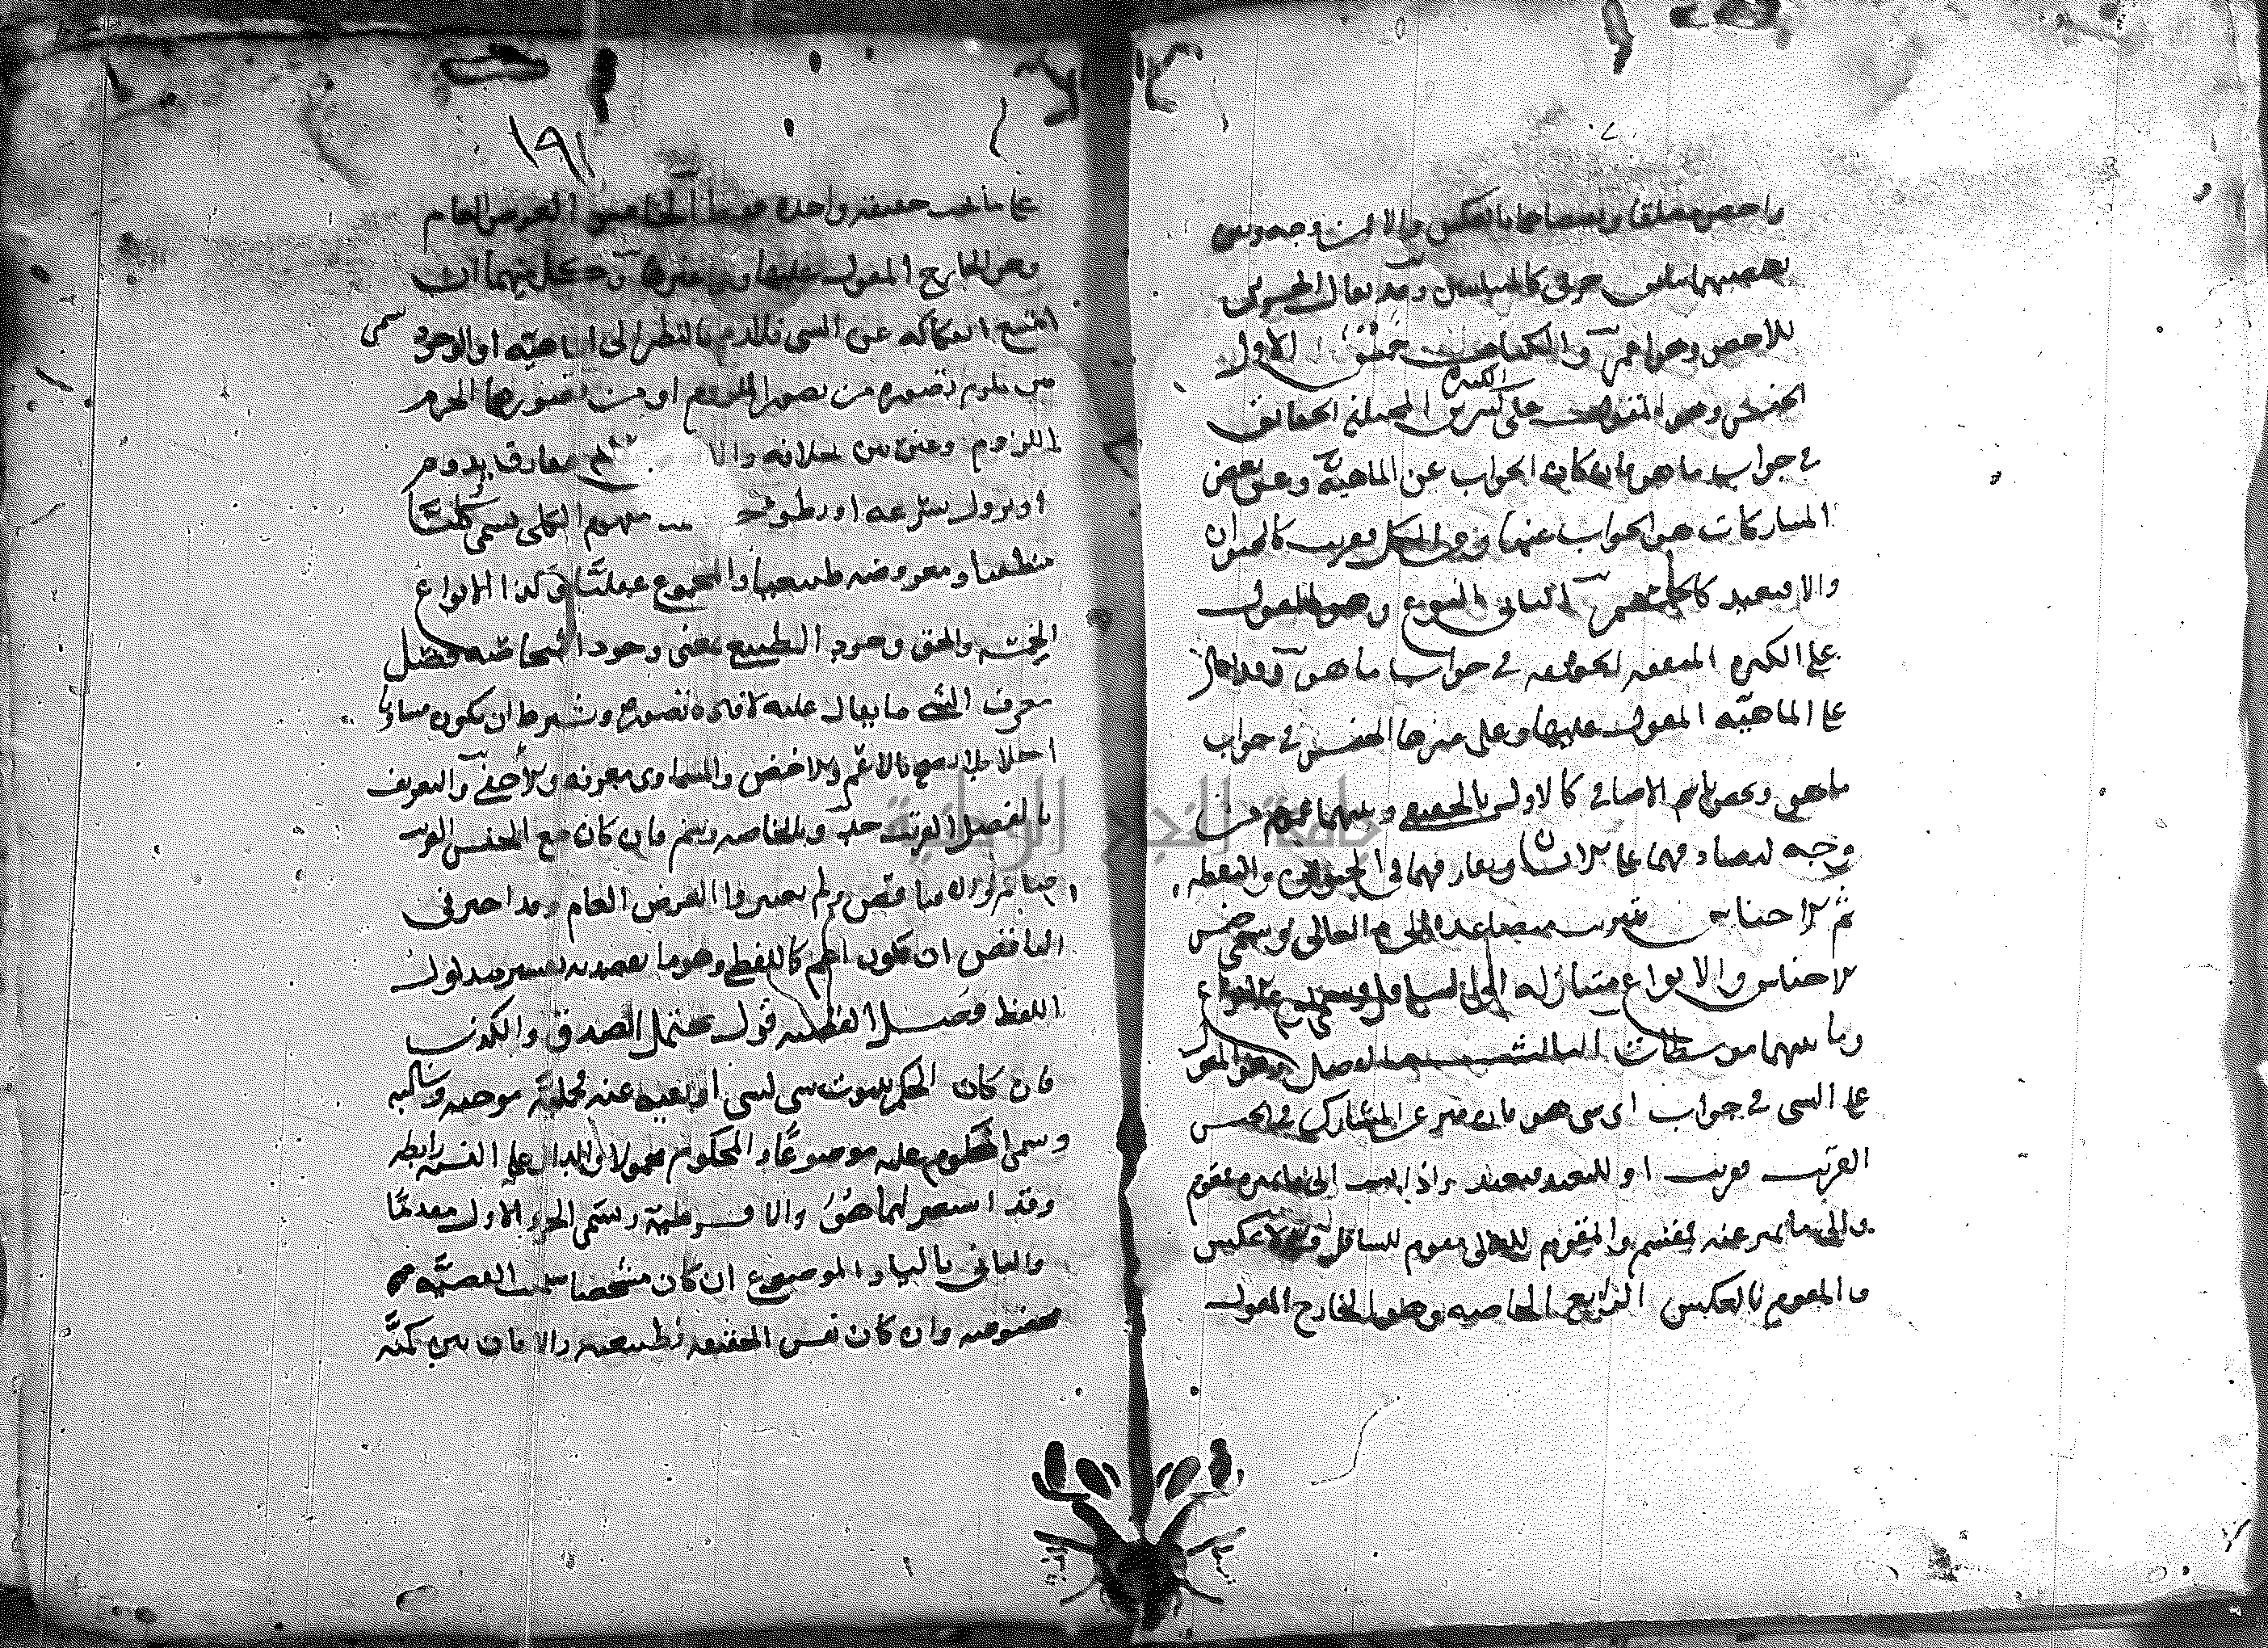 واخص مطلقا ونقيضاهما بالعكس والا فمن وجه وبين
نقيضيهما تباين جزئي كالمتباينين وقد يقال الجزئي
للاخص وهو اعم والكليات خمس الاول
الجنس وهو المقول على الكثرة المختلفة الحقائق
في جواب ما هو فان كان الجواب عن الماهية وعن بعض
المشاركات هو الجواب عنها وعن الكل فقريب كالحيوان
والا فبعيد كالجسم الثاني النوع وهو المقول
على الكثرة المتفقة الحقيقة في جواب ما هو وقد يقال
على الماهية المقول عليها وعلى غيرها الجنس في جواب
ما هو ويختص باسم الاضافي كالاول بالحقيقي وبينهما عموم من
وجه لتصادقهما على الانسان وتفارقهما في الحيوان والنقطة
ثم الاجناس تترتب متصاعدة الى العالي ويسمى جنس
الاجناس والانواع متنازلة الى السافل ويسمى نوع الانواع
وما بينهما متوسطات الثالث الفصل وهو المقول
على الشي في جواب اي شي هو فان ميز عن المشارك في الجنس
القريب فقريب او البعيد فبعيد واذا نسب الى ما يميزه فمقوم
والى ما يميز عنه فمقسم والمقوم للعالي مقوم للسافل ولا عكس
والمقسم بالعكس الرابع الخاصة وهو الخارج المقول
١٩١
على ما تحت حقيقة واحدة فقط الخامس العرض العام
وهو الخارج المقول عليها وعلى غيرها وكل منهما ان
امتنع انفكاكه عن الشي فلازم بالنظر الى الماهية او الوجود
بين يلزم تصوره من تصور الملزوم او من تصورهما الجزم
باللزوم وغير بين بخلافه والا فعرض مفارق يدوم
او يزول بسرعة او بطو مفهوم الكلي يسمى كليا
منطقيا ومعروضه طبيعيا والمجموع عقليا وكذا الانواع
الخمسة والحق وجود الطبيعي بمعنى وجود اشخاصه فصل
معرف الشي ما يقال عليه لافادة تصوره ويشترط ان يكون مساويا
اجلا فلا يصح بالاعم والاخص والمساوى معرفة والاخفى والتعريف
بالفصل القريب حد وبالخاصة رسم فان كان مع الجنس القريب
فتام والا فناقص ولم يعتبروا العرض العام وقد اجيز في
الناقص ان يكون اعم كاللفظي وهو ما يقصد به تفسير مدلول
اللفظ فصل القضية قول يحتمل الصدق والكذب
فان كان الحكم بثبوت شي لشي او نفيه عنه فحملية موجبة وسالبة
ويسمى المحكوم عليه موضوعا والمحكوم به محمولا والدال على النسبة رابطة
وقد استعير لها هو والا فشرطية ويسمى الجزء الاول مقدما
والثاني تاليا والموضوع ان كان مشخصا سميت القضية
مخصوصة وان كان نفس الحقيقة فطبيعية والا فان بين كمية